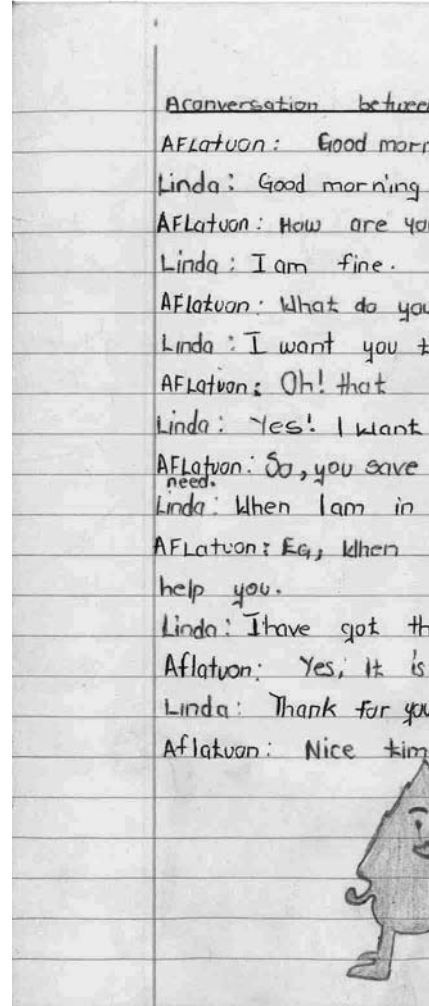 Aconversation between
AFLatuon: Good morn
Linda: Good morning
AFLatuon: How are you
Linda: I am fine.
AFlatuon: What do you
Linda: I want you t
AFLatuon: Oh! that
Linda: Yes! I want
AFLatuon: So, you save
need.
Linda: When Iam in
AFLatuon: EG, When
help you.
Linda: Ihave got th
Aflatuon: Yes, It is
Linda: Thank for you
Aflatuon: Nice tim